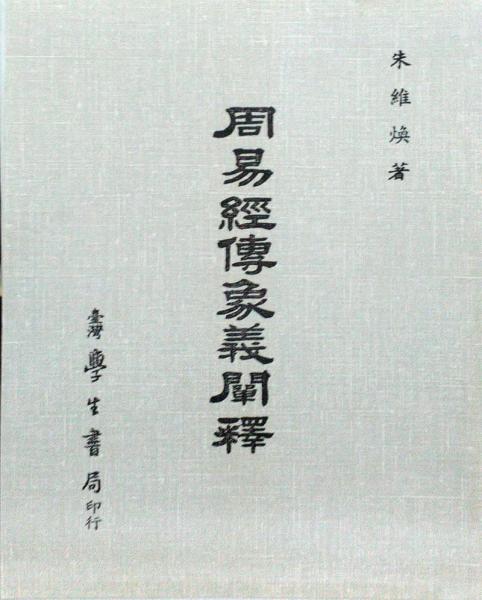 朱維煥著
周易經傳象義闡釋
臺灣學生書局印行